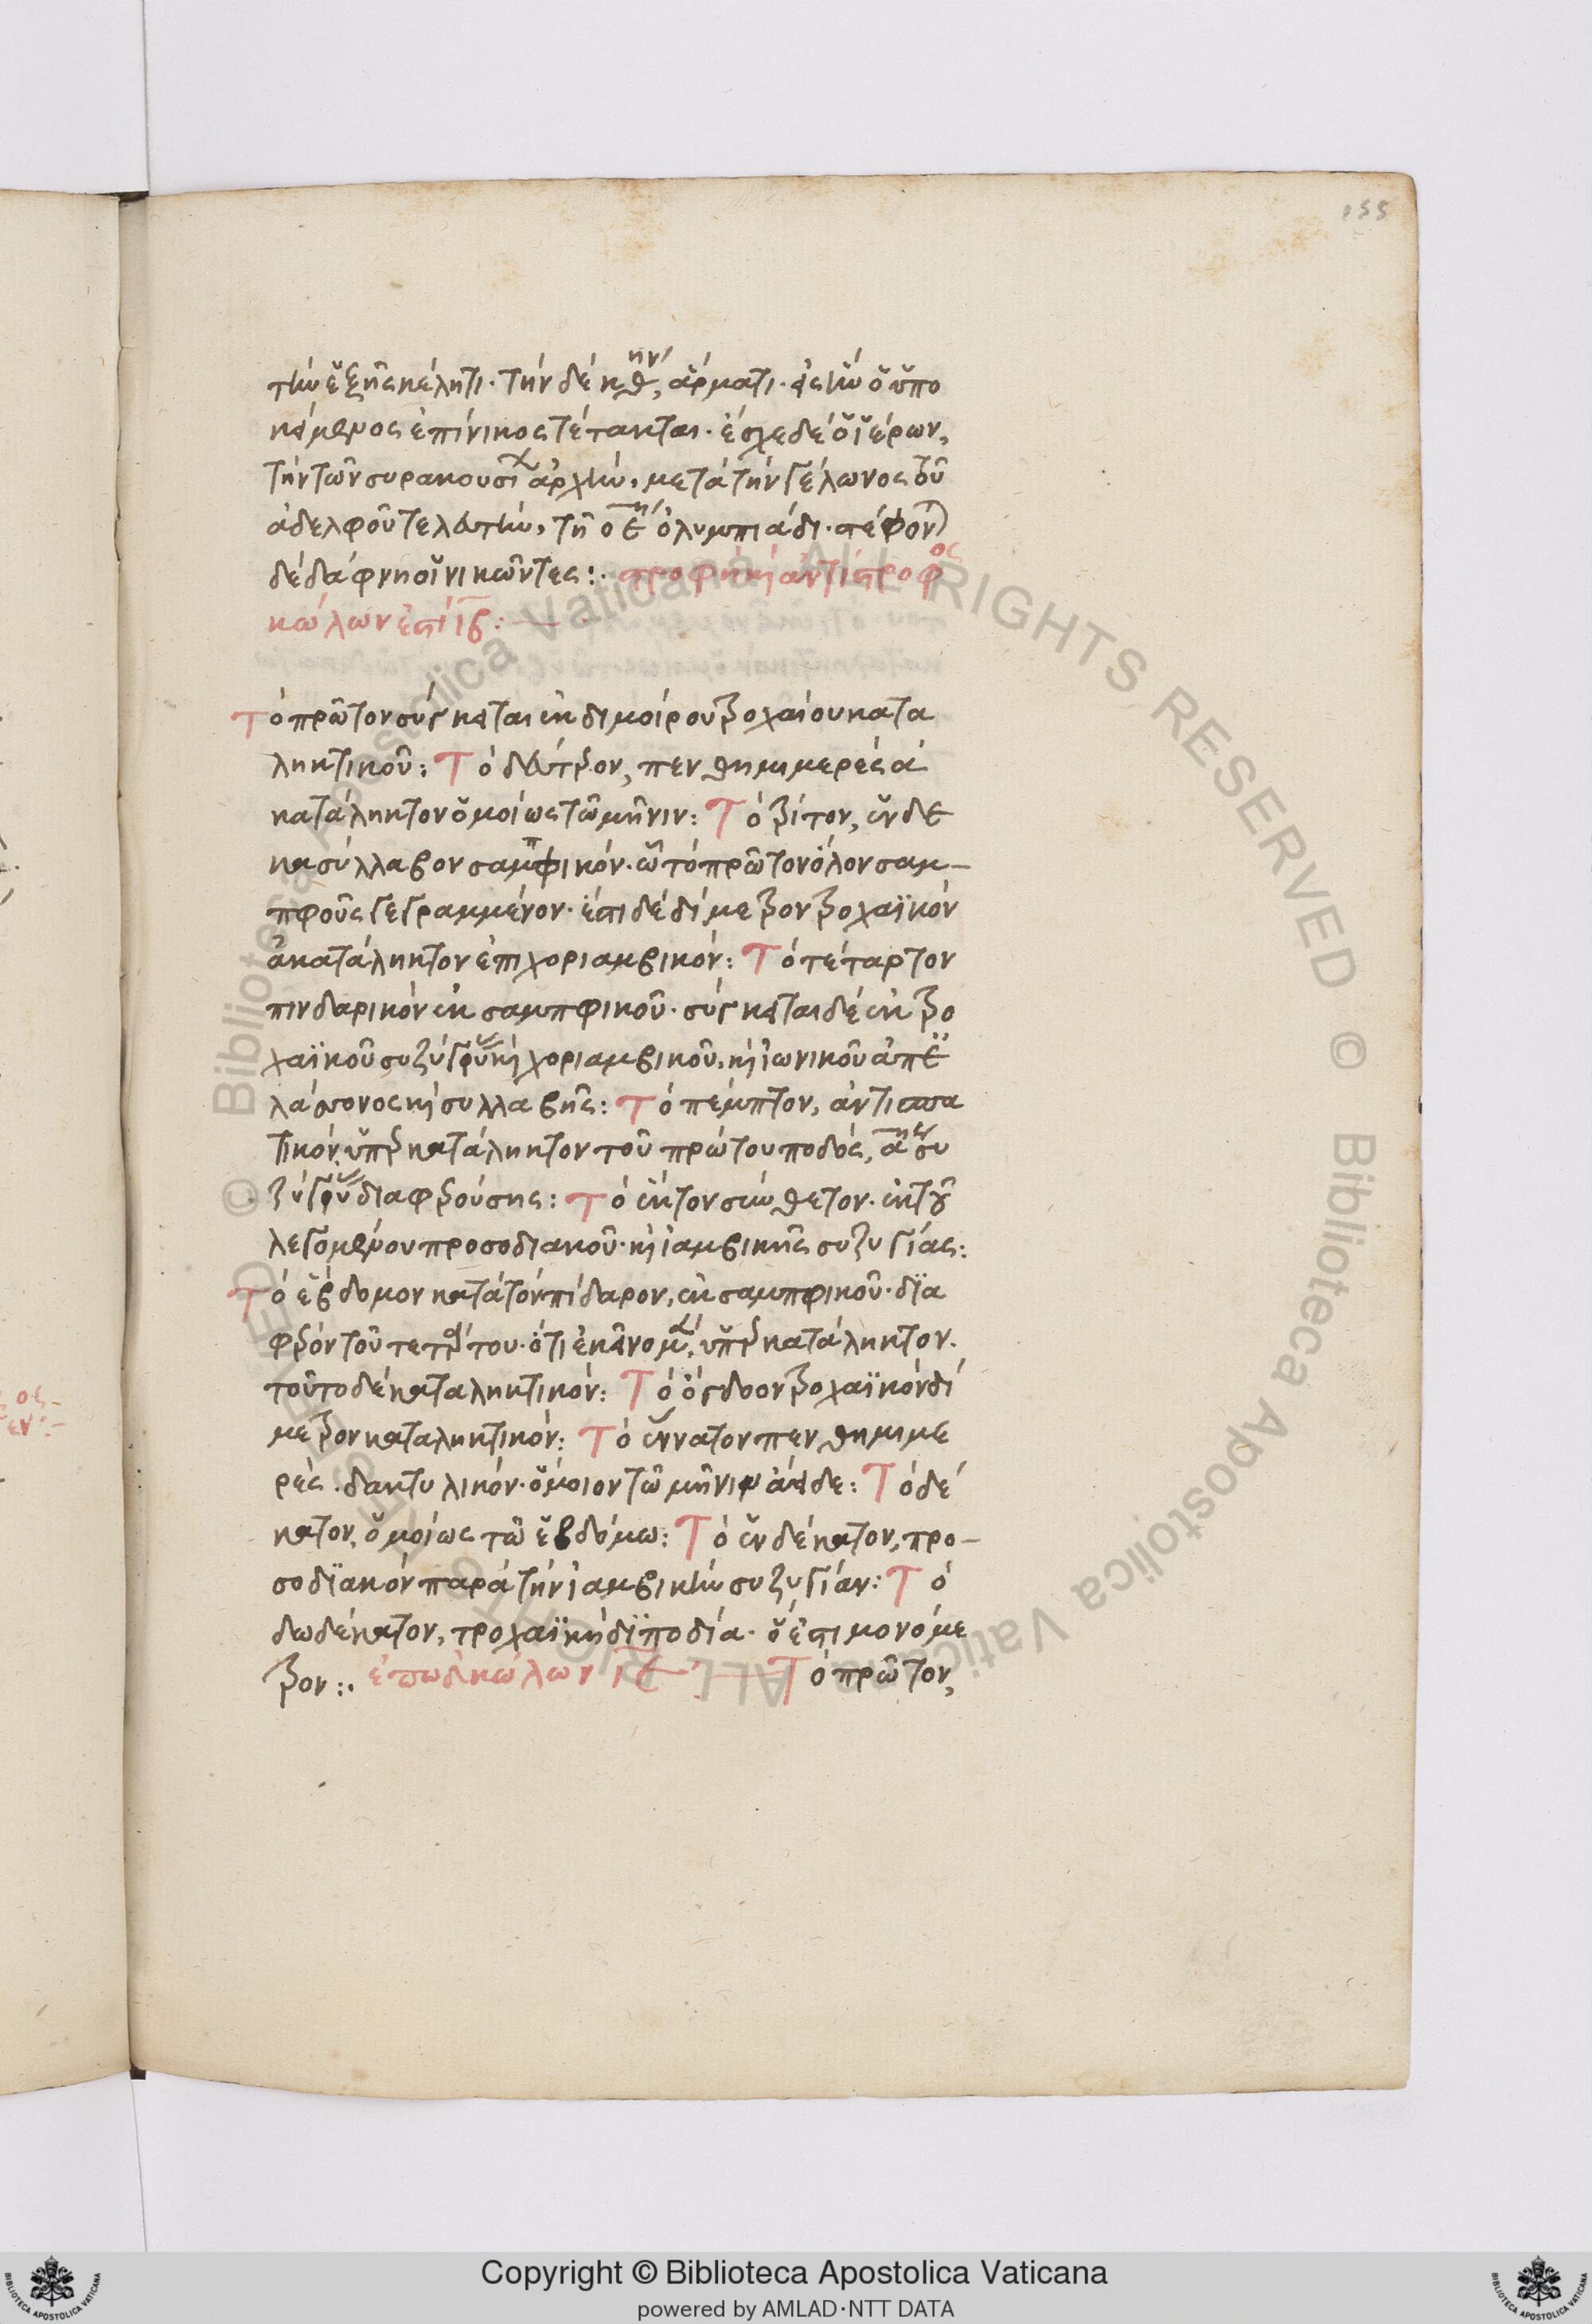 155
τὴν ἑξῆς κέλητι· τὴν δὲ κθ, ην ἅρματι· εἰς ἣν ὁ ὑπο
κείμενος ἐπίνικος τέτακται· ἔσχε δὲ ὁ ἱέρων,
τὴν τῶν συρακουσί ἀρχὴν, μετὰ τὴν γέλωνος τοῦ
ἀδελφοῦ τελευτὴν, τῆ οε ὀλυμπιάδι· στέφον
δὲ δάφνη οἱ νικῶντες:· στροφὴ καὶ ἀντίστροφος
κώλων ἐστὶ ιβ:—
Τὸ πρῶτον σύγκειται ἐκ διμοίρου τροχαίου κατα
ληκτικοῦ: Τὸ δεύτερον, πενθημιμερὲς ἀ
κατάληκτον ὁμοίως τῶ μῆνιν: Τὸ τρίτον, ἑνδε
κασύλλαβον σαπφικόν· ὧ τὸ πρῶτον ὅλον σαμ-
πφοῦς γεγραμμένον· ἔστι δὲ δίμετρον τροχαϊκὸν
ἀκατάληκτον ἐπιχοριαμβικόν: Τὸ τέταρτον
πινδαρικὸν ἐκ σαμπφικοῦ· σύγκειται δὲ ἐκ τρο
χαϊκοῦ συζύγου καὶ χοριαμβικοῦ, καὶ ἰωνικοῦ ἀπ ἐ
λάσσονος καὶ συλλαβῆς: Τὸ πέμπτον, ἀντισπα
τικόν, ὑπερκατάληκτον τοῦ πρώτου ποδὸς, α ης συ
ζύγου διαφερούσης: Τὸ ἕκτον σύνθετον· ἐκ τοῦ
λεγομένου προσοδιακοῦ· καὶ ἰαμβικῆς συζυγίας:
Τὸ ἕβδομον κατὰ τὸν πίδαρον, ἐκ σαμπφικοῦ· δια
φέρον τοῦ τετάρτου· ὅτι ἐκεῖνο μ, ὑπερκατάληκτον.
τοῦτο δὲ καταληκτικόν: Τὸ ὄγδοον τροχαϊκὸν δί
μετρον καταληκτικόν: Τὸ ἔννατον πενθημιμε
ρὲς· δακτυλικόν· ὅμοιον τῶ μῆνιν ἄειδε: Τὸ δέ
κατον, ὁμοίως τῶ ἑβδόμω: Τὸ ἑνδέκατον, προ-
σοδϊακὸν παρὰ τὴν ἰαμβικὴν συζυγίαν: Τὸ
δωδέκατον, τροχαϊκὴ διποδία· ὅ ἐστι μονόμε
τρον:· ἐπωδ κώλων ιε—:—Τὸ πρῶτον,
© Biblioteca Apostolica Vaticana ALL RIGHTS RESERVED © Biblioteca Apostolica Vaticana ALL RIGHTS RESERVED
Copyright © Biblioteca Apostolica Vaticana
powered by AMLAD·NTT DATA
BIBLIOTECA APOSTOLICA VATICANA
BIBLIOTECA APOSTOLICA VATICANA